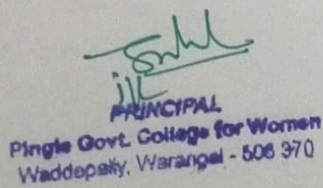 PRINCIPAL
Pingle Govt. College for Women
Waddepally, Warangal - 506 370